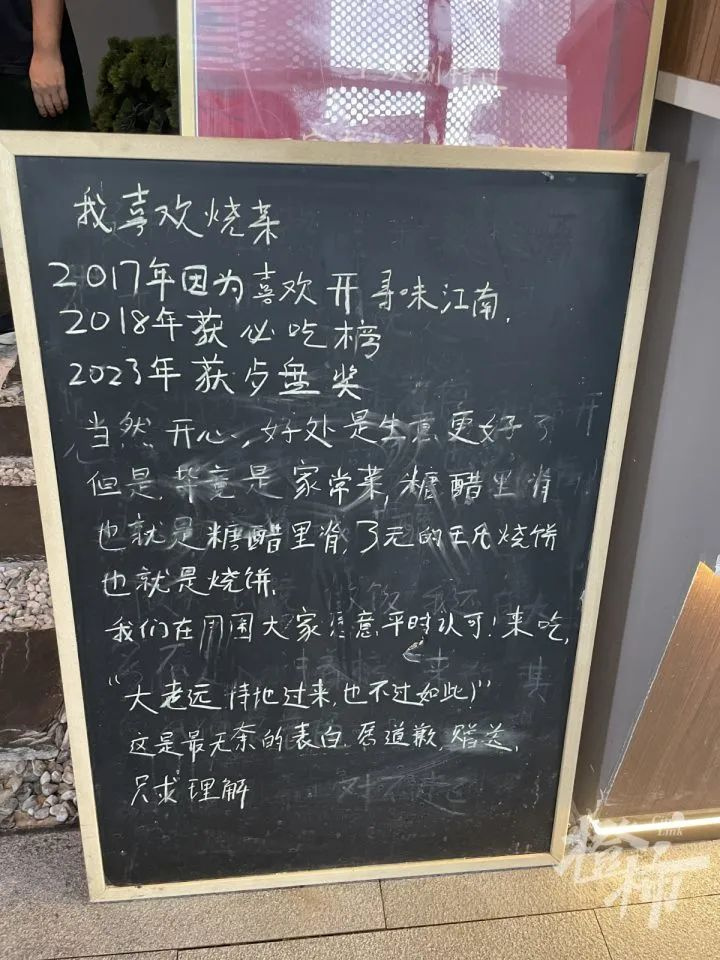 我喜欢烧菜
2017年因为喜欢开寻味江南.
2018年获必吃榜
2023年获歺盘奖
当然开心,好处是生意更好了
但是.毕竟是家常菜,糖醋里脊
也就是糖醋里脊,3元的王氏烧饼
也就是烧饼.
我们在周围大家 意平时认可!来吃,
“大老远特地过来,也不过如此!”
这是最无奈的表白.愿道歉,赠送,
只求理解
City
Link
橙柿